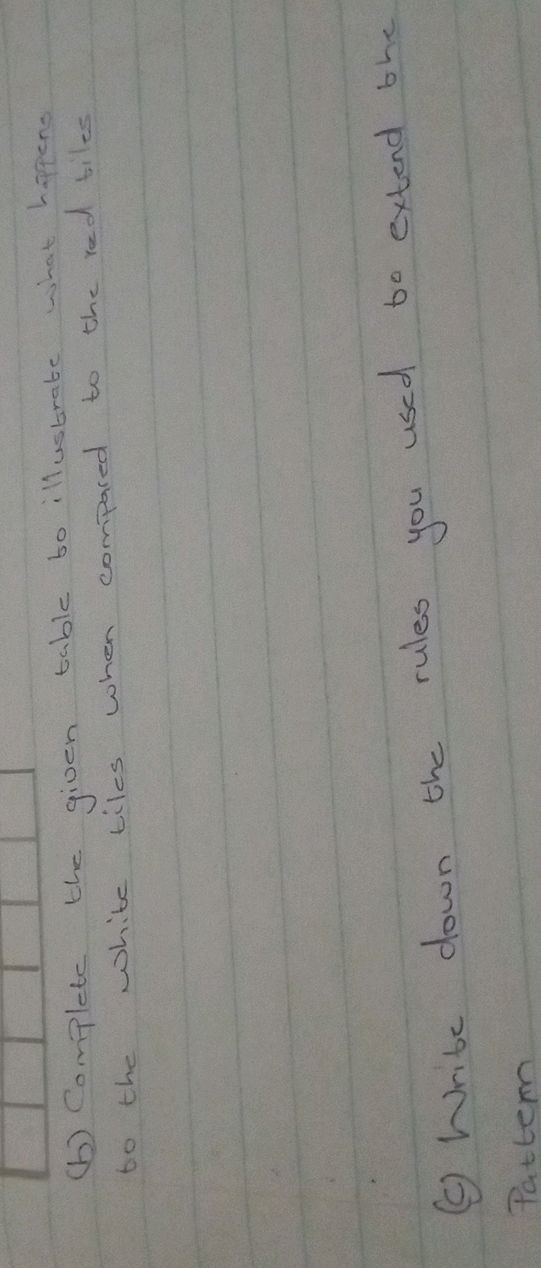 (b) Complete the given table to illustrate what happens
to the white tiles when compared to the red tiles
(c) Write down the rules you used to extend the
Pattern